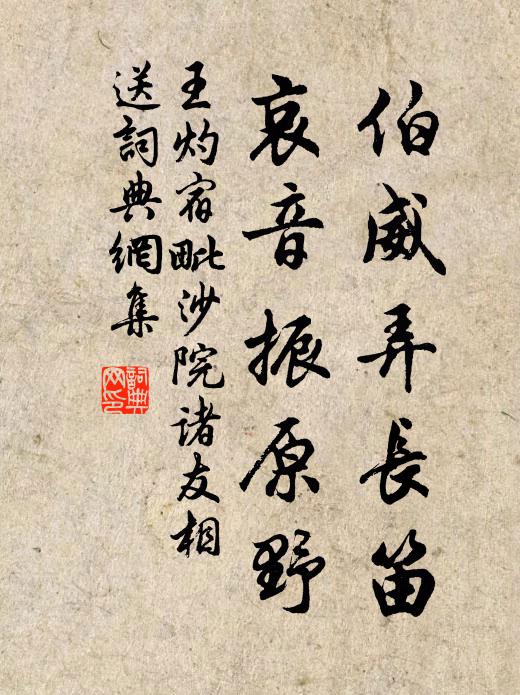 伯威弄長笛
哀音振原野
王灼宿毗沙院諸友相
送詞典網集
詞典
网印